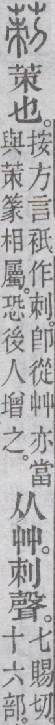 莿茦也。按方言祇作刺。卽從艸。亦當與茦篆相屬。恐後人增之。从艸。刺聲。七賜切。十六部。